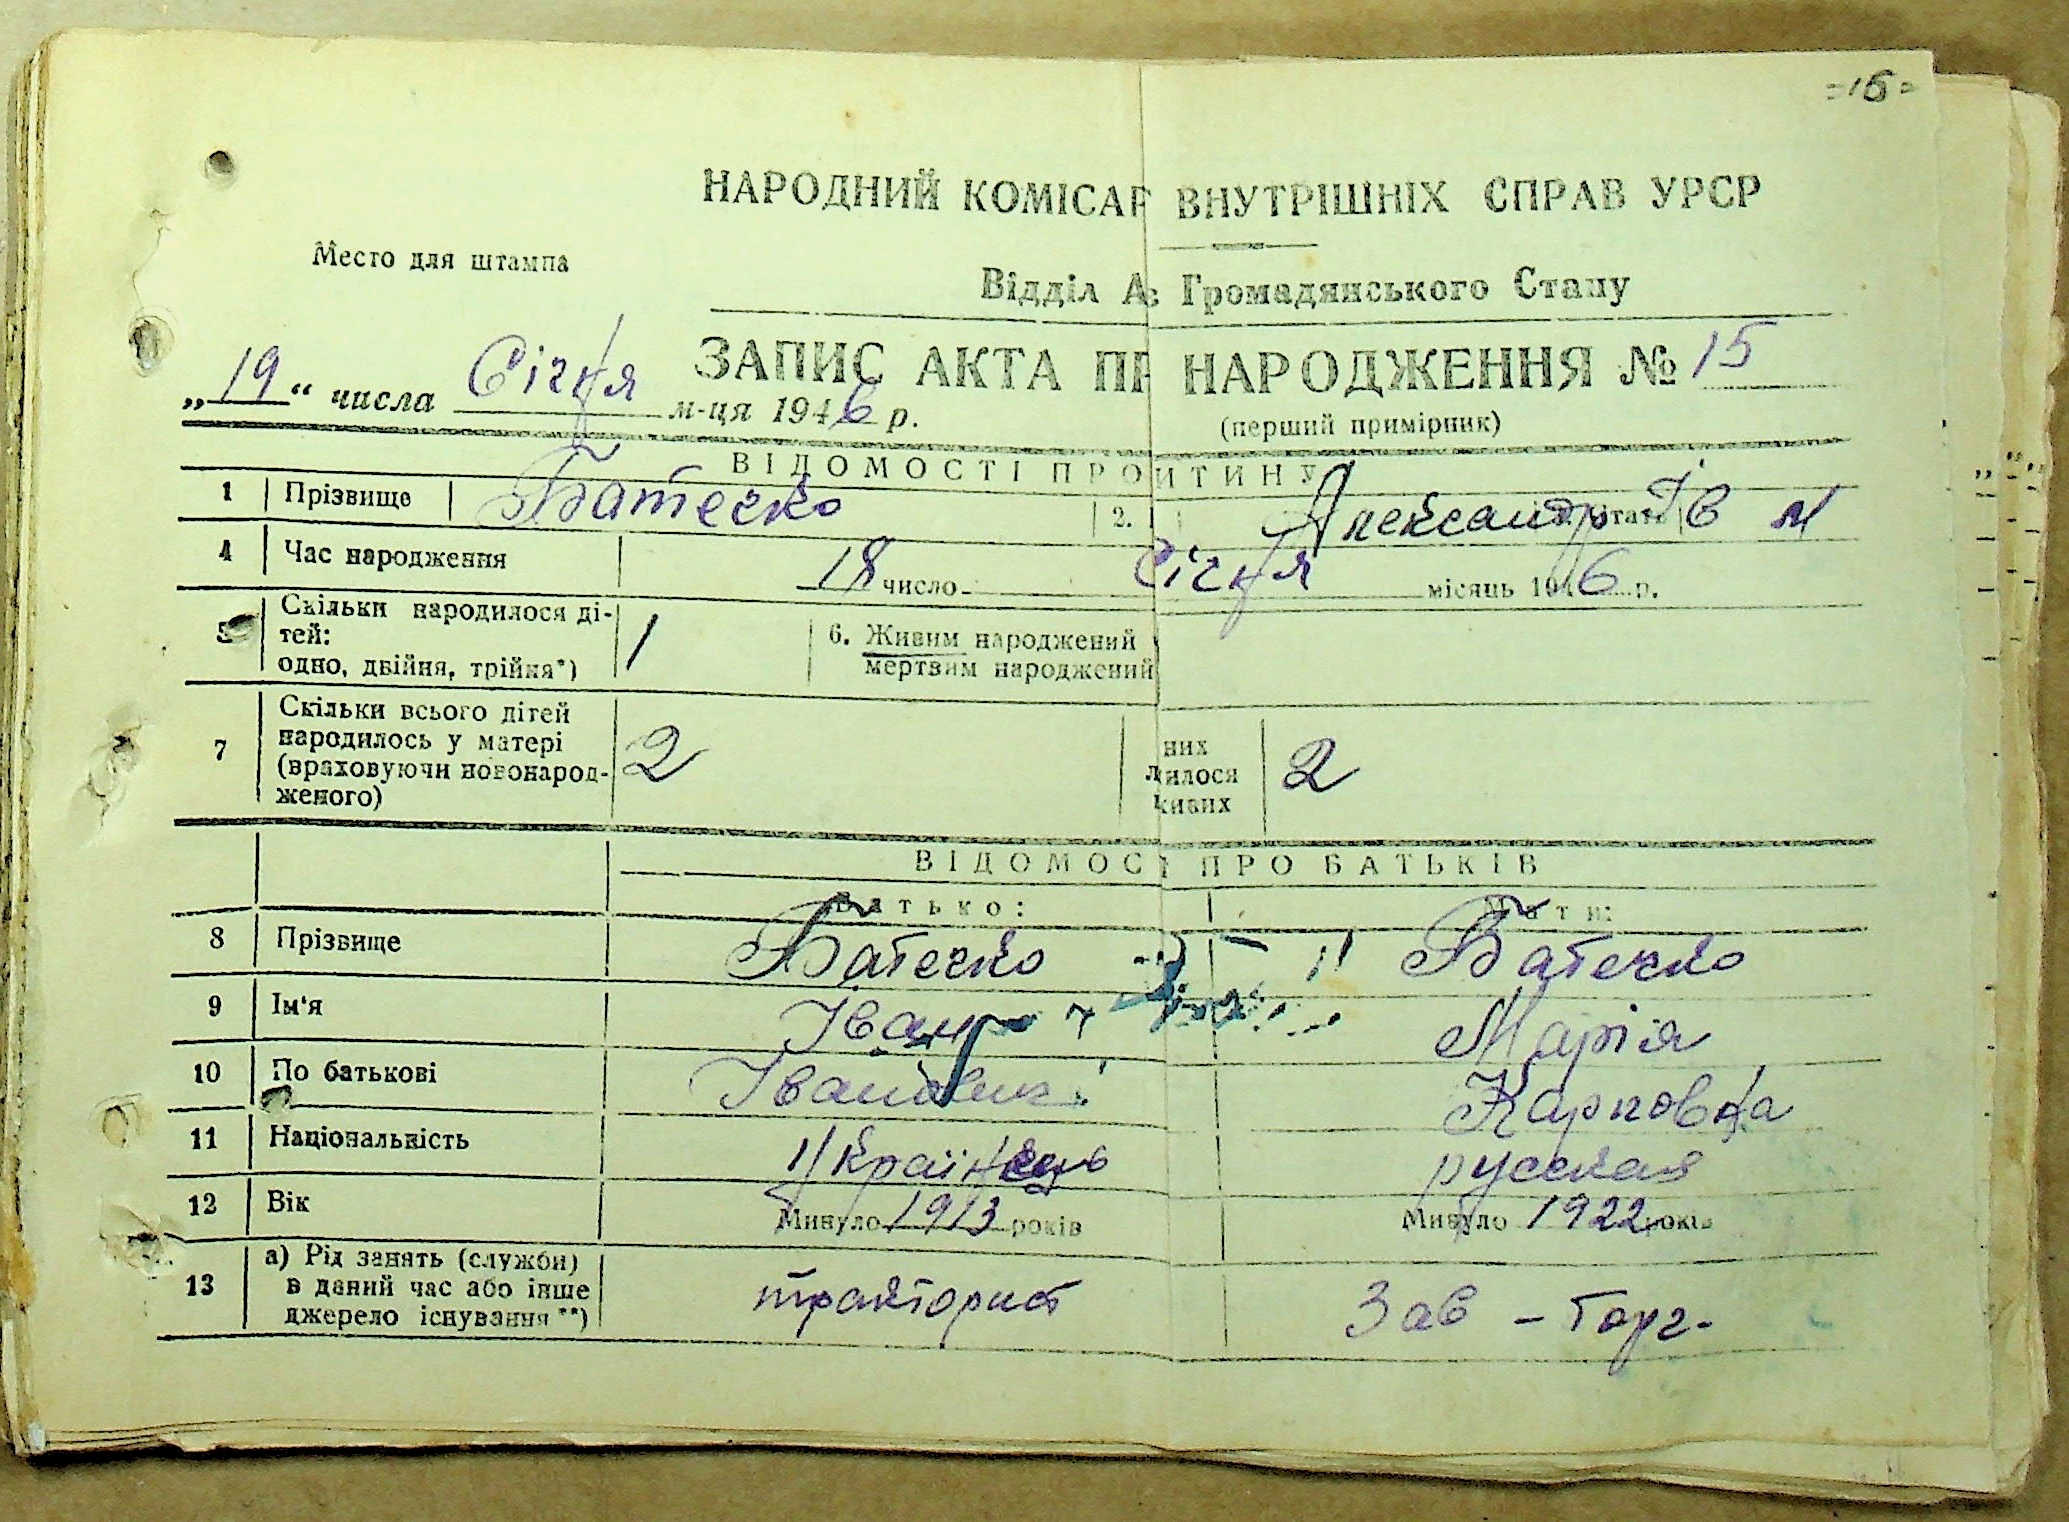 =15=
НАРОДНИЙ КОМІСАР ВНУТРІШНІХ СПРАВ УРСР
Место для штампа
Відділ Ав Громадянського Стану
ЗАПИС АКТА ПР НАРОДЖЕННЯ № 15
„19“ числа Січня м-ця 1946 р.
(перший примірник)
ВІДОМОСТІ ПРО ИТИНУ
1 Прізвище Батечко 2. Александр Ів м
4 Час народження 18 число Січня місяць 1946 р.
5 Скільки народилося ді-
тей:
одно, двійня, трійня*) 1
6. Живим народжений
мертвим народжений
7 Скільки всього дітей
народилось у матері
(враховуючи новонарод-
женого) 2
них
дилося
живих 2
ВІДОМОСТІ ПРО БАТЬКІВ
Батько: Мати:
8 Прізвище Батечко Батечко
9 Ім'я Іван Марія
10 По батькові Іванович Карповна
11 Національність Українець русская
12 Вік Минуло 1913 років Минуло 1922 років
13 а) Рід занять (служби)
в даний час або інше
джерело існування **) тракторист Зав - Торг-